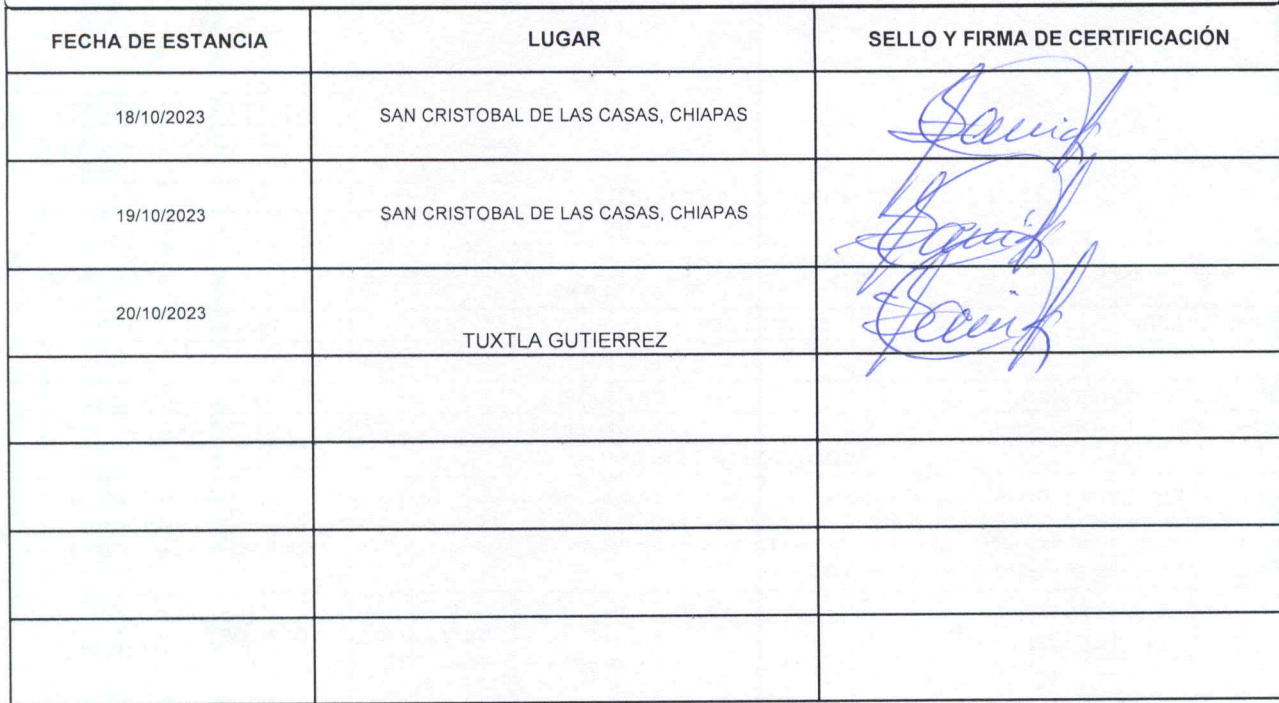 FECHA DE ESTANCIA LUGAR SELLO Y FIRMA DE CERTIFICACIÓN
18/10/2023 SAN CRISTOBAL DE LAS CASAS, CHIAPAS
19/10/2023 SAN CRISTOBAL DE LAS CASAS, CHIAPAS
20/10/2023
TUXTLA GUTIERREZ